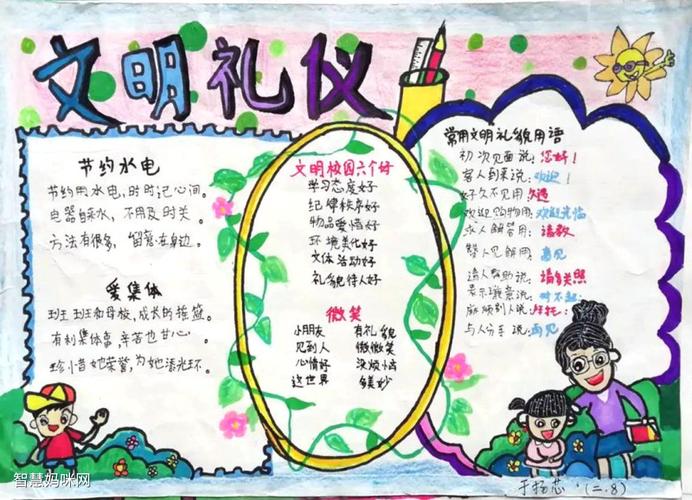 文明礼仪
节约水电
节约用水电,时时记心间。
电器自来水,不用及时关。
方法有很多,留意在身边。
爱集体
班班班和母校,成长的摇篮。
有利集体事,辛苦也甘心。
珍惜她荣誉,为她添光环。
文明校园六个好
学习态度好
纪律秩序好
物品爱惜好
环境美化好
文体活动好
礼貌待人好
微笑
小朋友 有礼貌
见到人 微微笑
心情好 没烦恼
这世界 多美妙
常用文明礼貌用语
初次见面说:您好!
客人到来说:欢迎!
好久不见用久违
欢迎购物用:欢迎光临
求人解答用:请教
请人帮助说:请多关照
表示歉意说:对不起
麻烦别人说:拜托
与人分手说:再见
于扬芯·(二.8)
智慧妈咪网